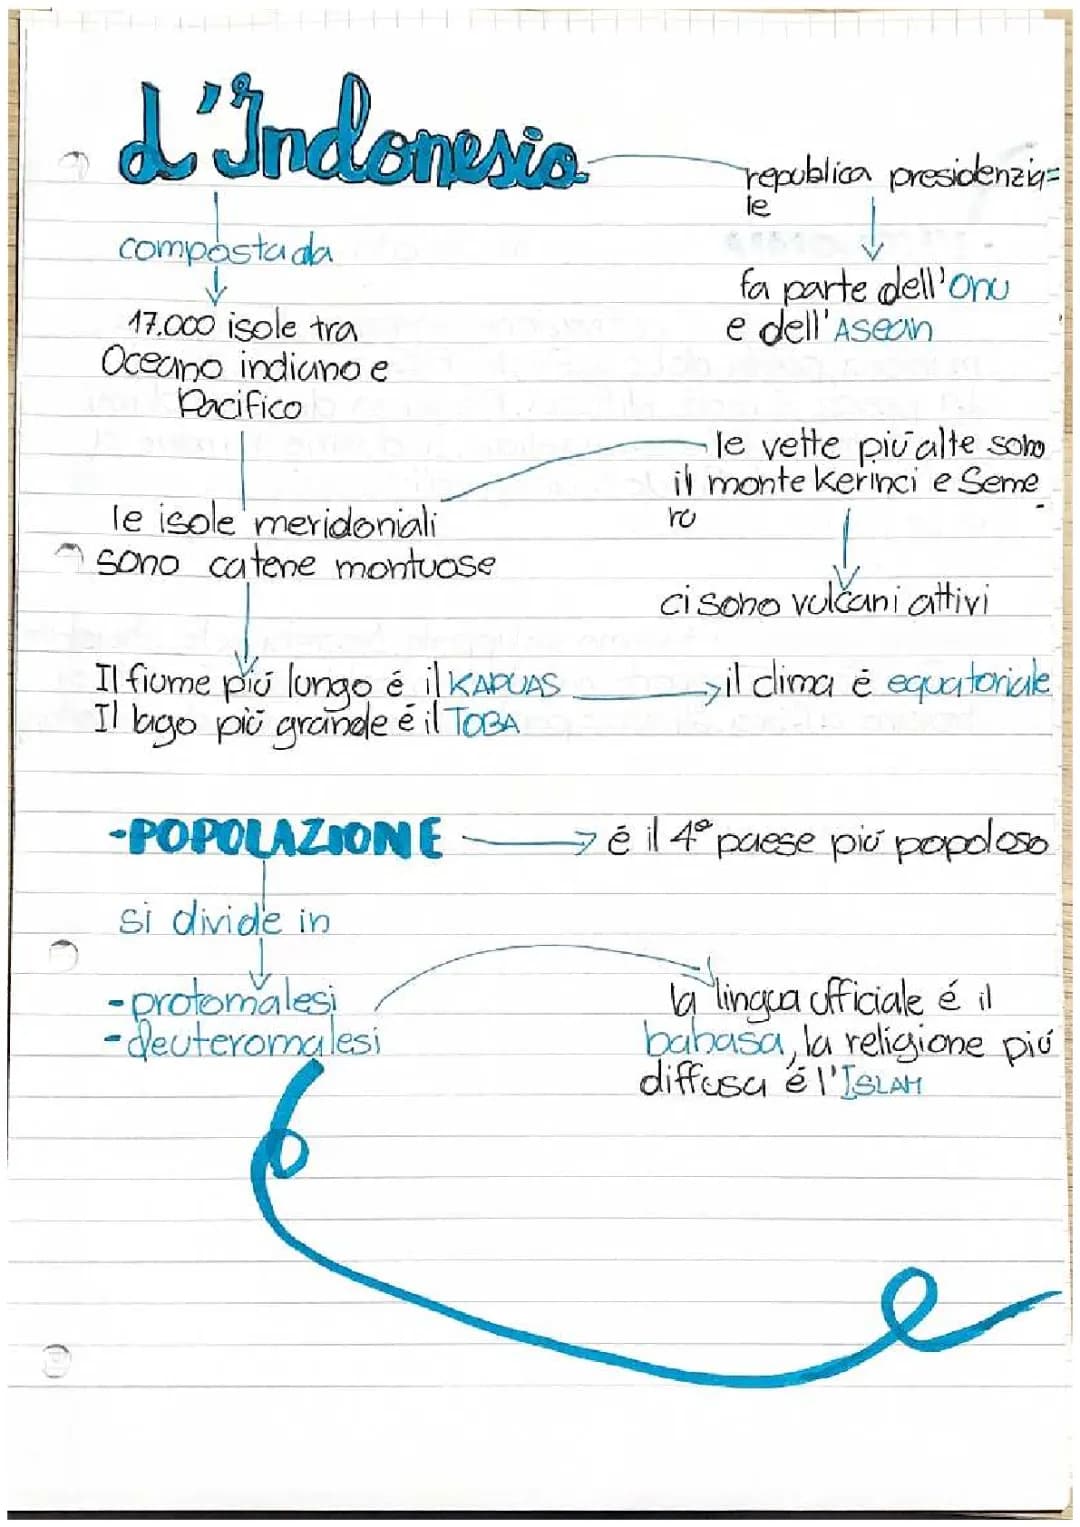 L'Indonesia
republica presidenzia=
le
composta da
fa parte dell'Onu
e dell'Asean
17.000 isole tra
Oceano indiano e
Pacifico
le vette più alte sono
il monte Kerinci e Seme
ro
le isole meridoniali
sono catene montuose
ci sono vulcani attivi
Il fiume più lungo é il KAPUAS
il clima é equatoriale
Il lago più grande é il TOBA
-POPOLAZIONE
é il 4° paese più popoloso
si divide in
-protomalesi
-deuteromalesi
la lingua ufficiale é il
bahasa, la religione più
diffusa é l'ISLAM